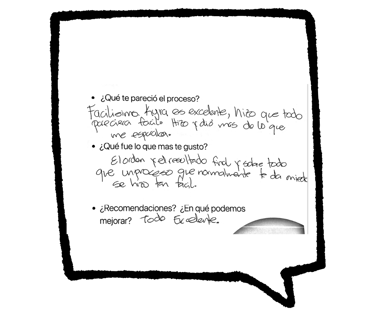 • ¿Qué te pareció el proceso?
Facilisimo Kyra es excelente, hizo que todo
pareciera facil. Hizo y dió mas de lo que
me esperaba.
• ¿Qué fue lo que mas te gusto?
El orden y el resultado final y sobre todo
que un proceso que normalmente te da miedo
se hizo tan facil.
• ¿Recomendaciones? ¿En qué podemos
mejorar? Todo Excelente.